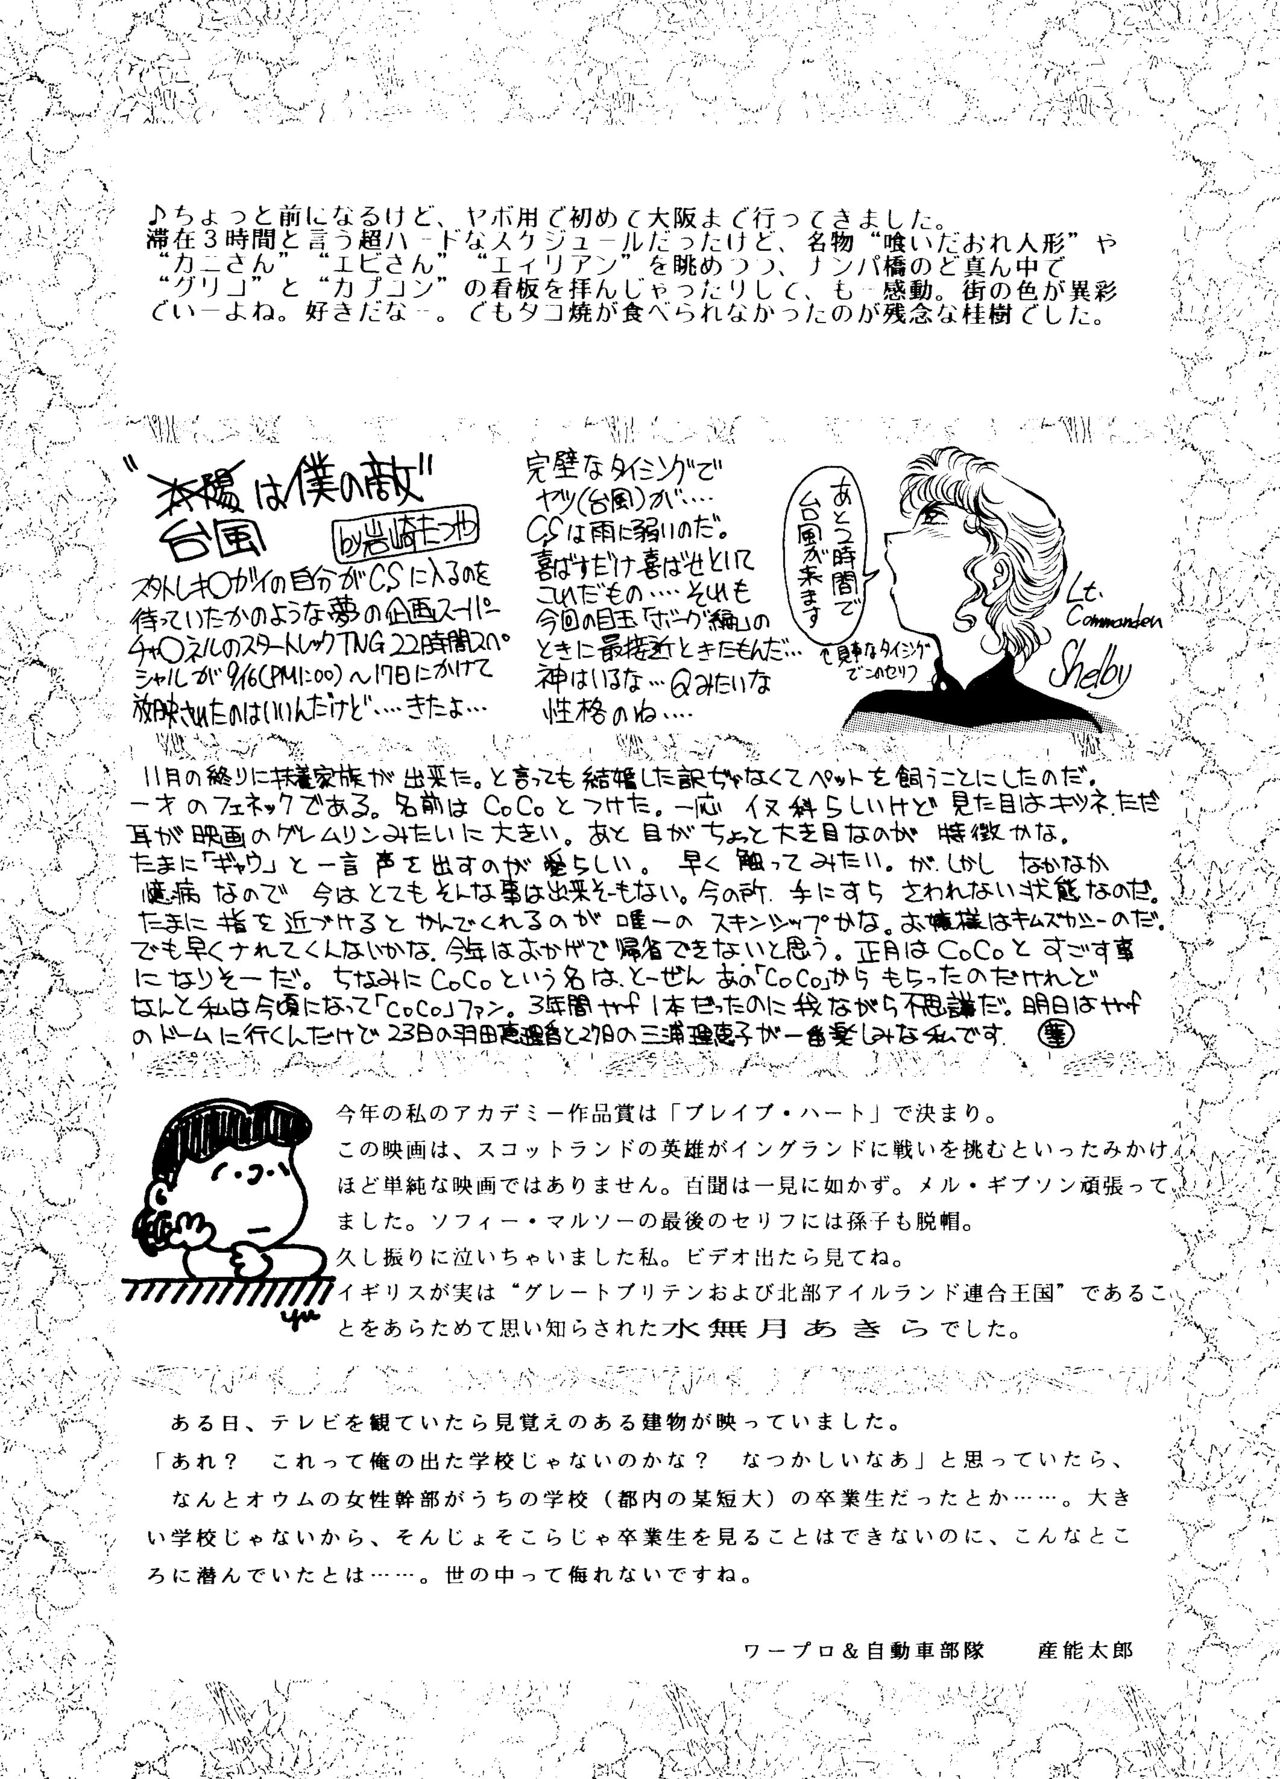 ♪ちょっと前になるけど、ヤボ用で初めて大阪まで行ってきました。
滞在3時間と言う超ハードなスケジュールだったけど、名物“喰いだおれ人形”や
“カニさん”“エビさん”“エィリアン”を眺めつつ、ナンパ橋のど真ん中で
“グリコ”と“カプコン”の看板を拝んじゃったりして、も一感動。街の色が異彩
でいーよね。好きだなー。でもタコ焼が食べられなかったのが残念な桂樹でした。
“太陽は僕の敵”
台風
by岩崎たつや
スタトレキ〇ガイの自分がC.S.に入るのを
待っていたかのような夢の企画スーパー
チャ〇ネルのスタートレックTNG22時間スペ
シャルが9/16(PM1:00)～17日にかけて
放映されたのはいいんだけど‥‥きたよ…
完璧なタイミングで
ヤツ(台風)が‥‥
C.S.は雨に弱いのだ。
喜ばすだけ喜ばせといて
これだもの‥‥それも
今回の目玉「ボーグ編」の
ときに最接近ときたもんだ…
神はいるな…Qみたいな
性格のね‥‥
あと2時間で
台風が来ます
見事なタイミング
でこのセリフ
Lt.
Commander
Shelby
11月の終りに扶養家族が出来た。と言っても結婚した訳ぢゃなくてペットを飼うことにしたのだ。
一才のフェネックである。名前はCoCoとつけた。一応イヌ科らしいけど見た目はキツネ。ただ
耳が映画のグレムリンみたいに大きい。あと目がちょっと大き目なのが特徴かな。
たまに「ギャウ」と一言声を出すのが愛らしい。早く触ってみたい。が、しかしなかなか
臆病なので今はとてもそんな事は出来そーもない。今の所、手にすらさわれない状態なのだ。
たまに指を近づけるとかんでくれるのが唯一のスキンシップかな。お嬢様はキムズカシーのだ。
でも早くナれてくんないかな。今年はおかげで帰省できないと思う。正月はCoCoとすごす事
になりそーだ。ちなみにCoCoという名は、とーぜんあの「CoCo」からもらったのだけれど
なんと私は今頃になって「CoCo」ファン。3年間ribbon1本だったのに我ながら不思議だ。明日は
のドームに行くんだけで23日の羽田恵理香と27日の三浦理恵子が一番楽しみな私です。
今年の私のアカデミー作品賞は「ブレイブ・ハート」で決まり。
この映画は、スコットランドの英雄がイングランドに戦いを挑むといったみかけ
ほど単純な映画ではありません。百聞は一見に如かず。メル・ギブソン頑張って
ました。ソフィー・マルソーの最後のセリフには孫子も脱帽。
久し振りに泣いちゃいました私。ビデオ出たら見てね。
イギリスが実は“グレートブリテンおよび北部アイルランド連合王国”であるこ
とをあらためて思い知らされた水無月あきらでした。
yu
ある日、テレビを観ていたら見覚えのある建物が映っていました。
「あれ？　これって俺の出た学校じゃないのかな？　なつかしいなあ」と思っていたら、
なんとオウムの女性幹部がうちの学校（都内の某短大）の卒業生だったとか……。大き
い学校じゃないから、そんじょそこらじゃ卒業生を見ることはできないのに、こんなとこ
ろに潜んでいたとは……。世の中って侮れないですね。
ワープロ＆自動車部隊　　産能太郎